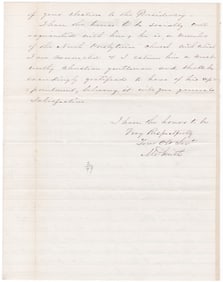 of your election to the Presidency.
I have the honor to be personally
acquainted with him; he is a member
of the North Presbyterian Church with which
I am connected & I esteem him a
christian gentleman and should be
exceedingly gratified to hear of his ap-
pointment, believing it will give general
satisfaction
I have the honor to be
Very Respectfully
Your Obt Svt